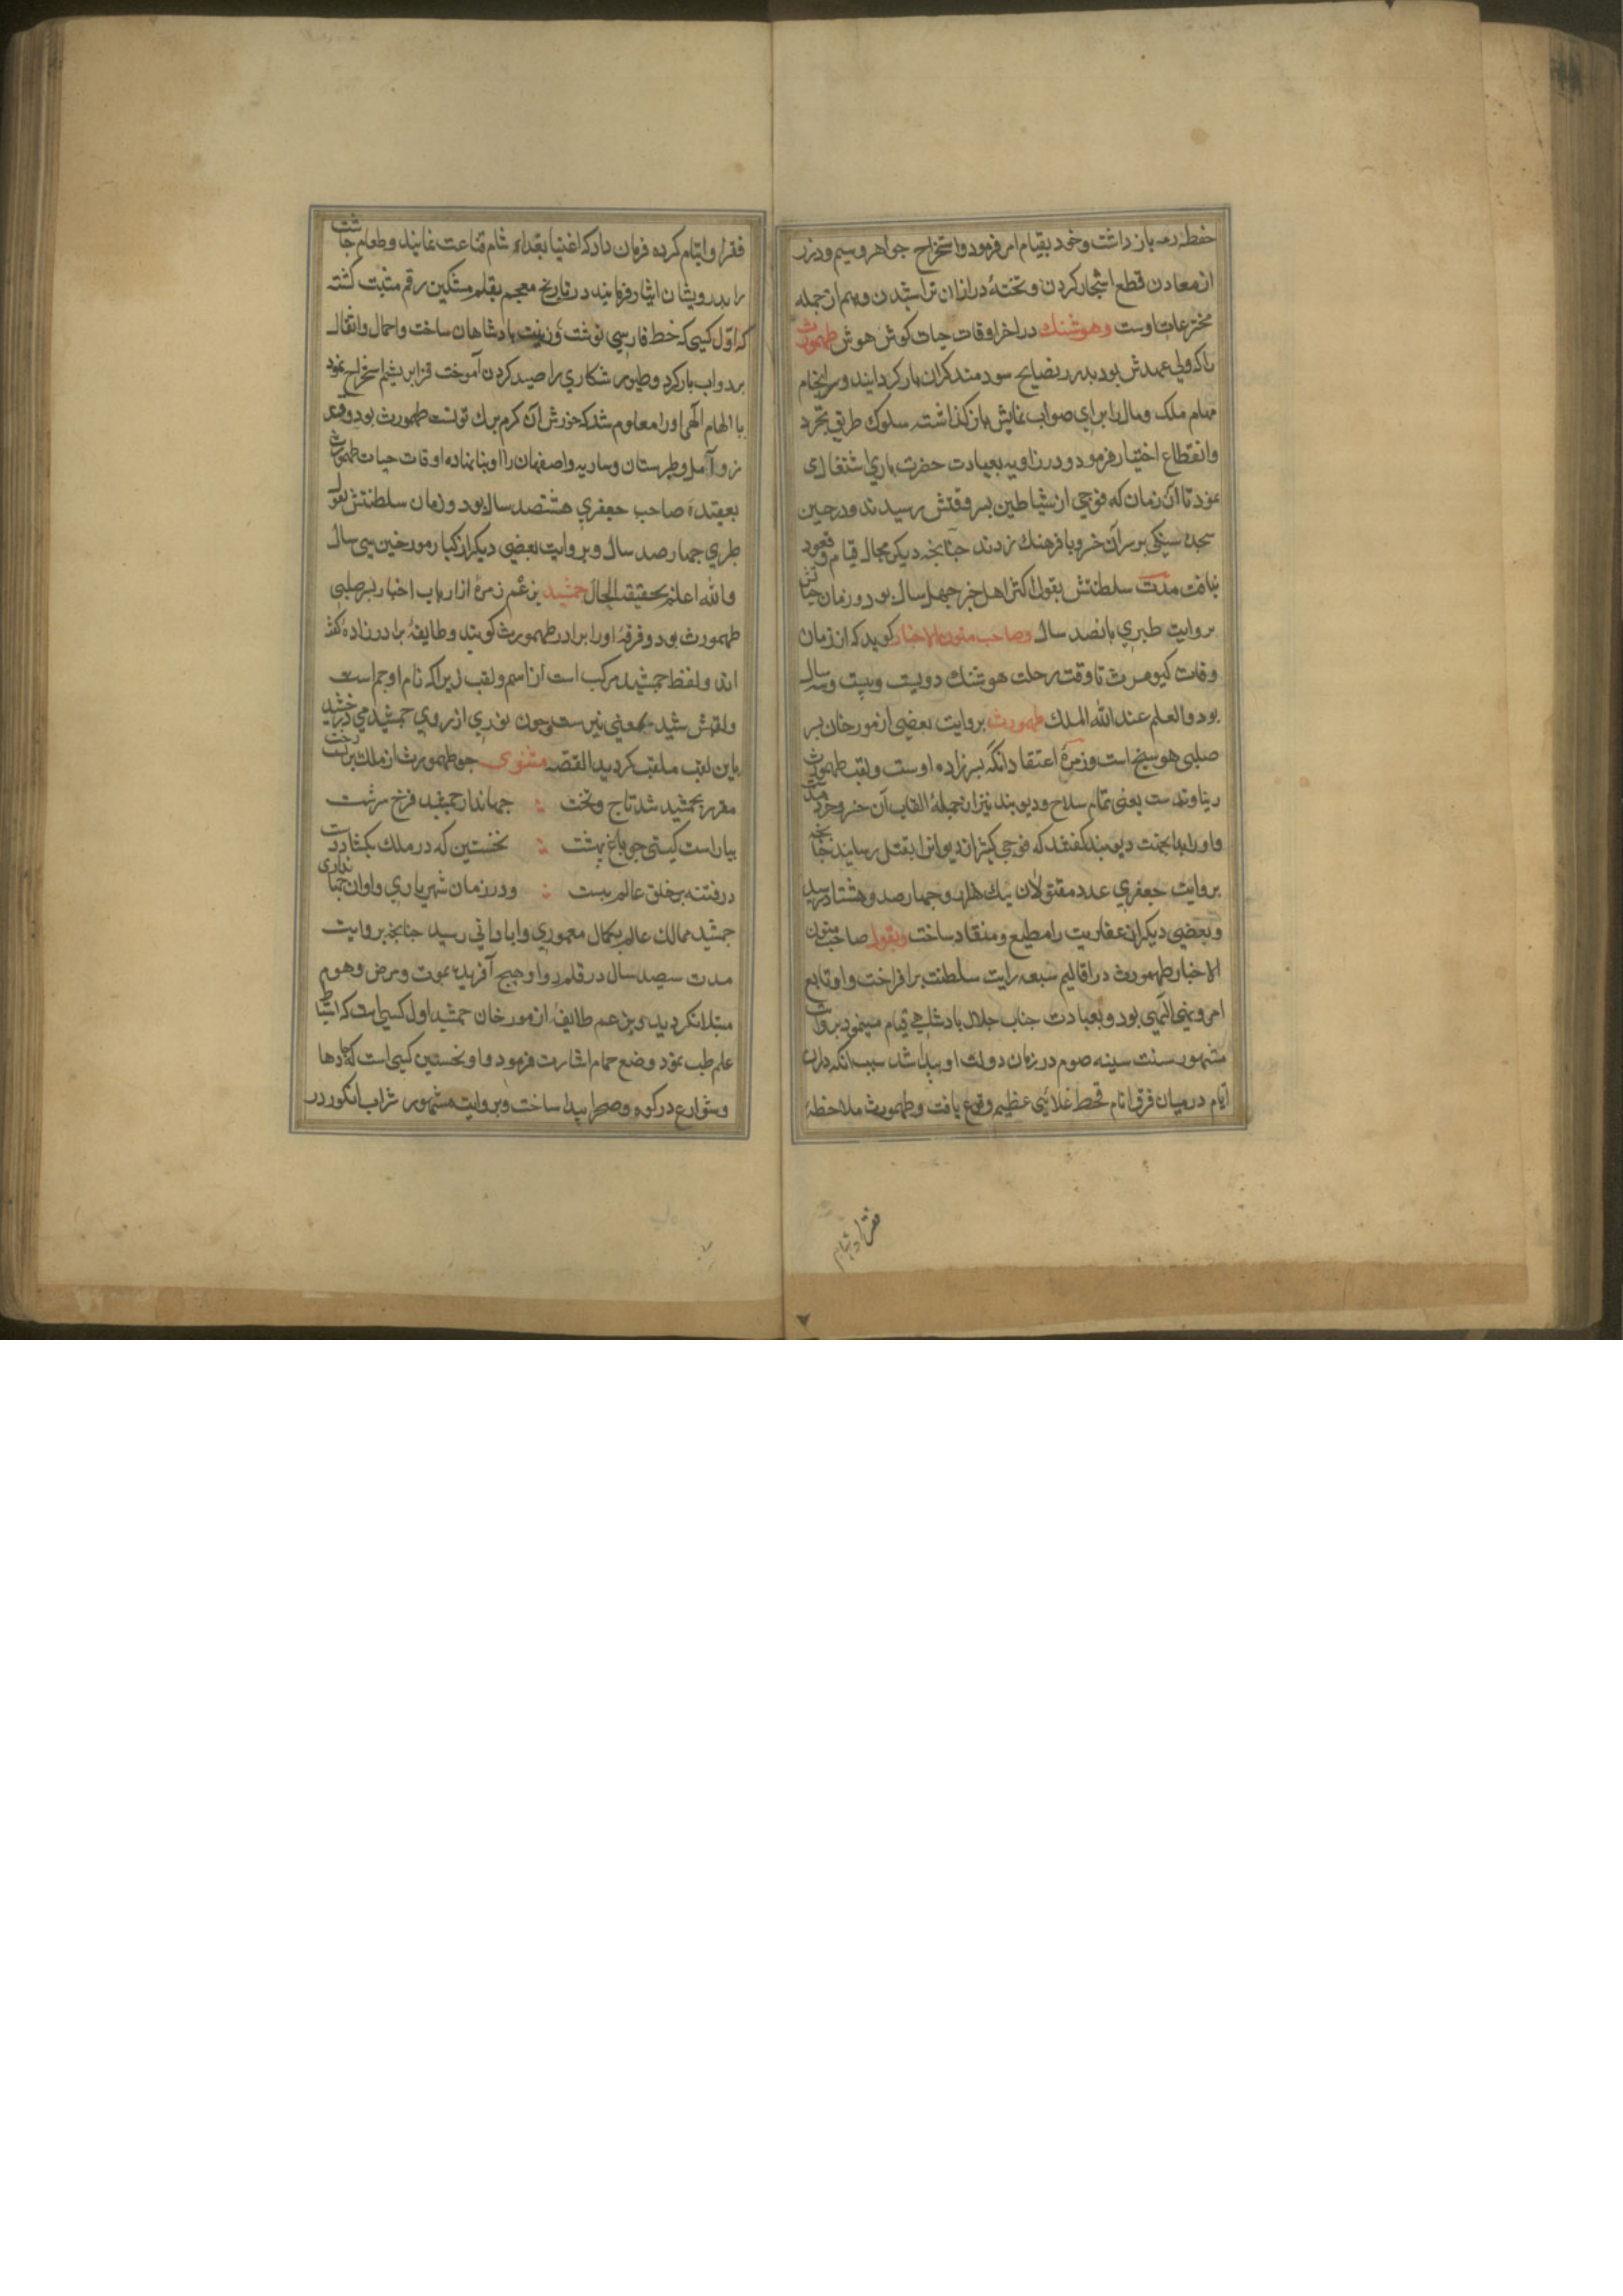 حفظ رمه باز داشت و خود بقیام امر فرمود و استخراج جواهر و سیم و زر
از معادن قطع اشجار کردن و تختهٔ در ازان تراشیدن و هم از جمله
مخترعات اوست و هوشنك در اخر اوقات حیات کوش هوش طهمورث
را که ولی عهدش بود بدرر نصایح سودمند کران بار کردانید و سرانجام
مهام ملک و مال را برای صواب نمایش باز کذاشته سلوك طریق تجرد
وانقطاع اختیار فرمود و در زاویه بعبادت حضرت باری اشتغال
نمود تا آن زمان که فوجی از شیاطین بسر وقتش رسیدند و در حین
سجده سنکی بر سر آن خسرو با فرهنك زدند چنانچه دیکر مجال قیام و قعود
نیافت مدت سلطنتش بقول اکثر اهل خبر چهل سال بود و زمان حیاتش
بروایت طبری پانصد سال و صاحب متون الاخبار کوید که از زمان
وفات کیومرث تا وقت رحلت هوشنك دویست و بیست و سه سال
بود والعلم عند الله الملك طهمورث بروایت بعضی از مورخان پسر
صلبی هوشنج است و زمرهٔ اعتقاد انکه پسرزاده اوست و لقب طهمورث
ریناوندست یعنی تمام سلاح و دیو بند نیز از جملهٔ القاب آن خسرو خردمندست
و او را بدا بجهت دیو بند کفتند که فوجی کثیر از دیوانرا بقتل رسانید چنانچه
بروایت جعفری عدد مقتولان یك هزار و چهارصد و هشتاد رسید
و بعضی دیکر از عفاریت را مطیع و منقاد ساخت و بقول صاحب متون
الاخبار طهمورث در اقالیم سبعه رایت سلطنت برافراخت و او تابع
امر و نهی الهی بود و بعبادت جناب جلال پادشاهی قیام مینمود بروایت
مشهور سنت سینه صوم در زمان دولت او پیدا شد سبب انکه دران
ایام در میان فرق انام قحط غلائی عظیم وقوع یافت و طهمورث ملاحظهٔ
فقرا و ایتام
فقرا و ایتام کرده فرمان داد که اغنیا بغداء شام قناعت نمایند و طعام چاشت
را بدرویشان ایثار فرمایند در تاریخ معجم بقلم مشکین رقم مثبت کشته
که اول کسی که خط فارسی نوشت و زینت پادشاهان ساخت و احمال و اثقال
بر دواب بار کرد و طیور شکاری را صید کردن آموخت قز ابریشم استخراج نمود
با الهام الهی او را معلوم شد که خورش آن کرم برك توتست طهمورث بود و
مرو آمل و طبرستان و ساریه و اصفهان را او بنا نهاده اوقات حیات طهمورث
بعقیدهٔ صاحب جعفری هشتصد سال بود و زمان سلطنتش بقول
طبری چهار صد سال و بروایت بعضی دیکر از کبار مورخین سی سال
والله اعلم بحقیقة الحال جمشید بزعم زمرهٔ از ارباب اخبار پسر صلبی
طهمورث بود و فرقهٔ او را برادر طهمورث کویند و طایفهٔ برادرزاده کفته
اند و لفظ جمشید مرکب است از اسم و لقب زیرا که نام او جم است
و لقبش شید بمعنی نیر ست و چون نوری از روی جمشید می درخشید
باین لقب ملقب کردید القصه مثنوی چو طهمورث از ملك بربست رخت
مقرر بجمشید شد تاج و تخت : جهاندار جمشید فرخ سرشت
بیاراست کیتی چو باغ بهشت : نخستین که در ملك بکشاد دست
در فتنه بر خلق عالم ببست : و در زمان شهریاری و اوان جهانداری
جمشید ممالك عالم بکمال معموری و ابادانی رسید چنانچه بروایت
مدت سیصد سال در قلمرو او هیچ آفریده بموت و مرض و هرم
مبتلا نکردید و بزعم طایفهٔ از مورخان جمشید اول کسی است که استنباط
علم طب نمود و وضع حمام اشارت فرمود و او نخستین کسی است که جادها
و شوارع در کوه و صحرا پیدا ساخت و بروایت مشهور شراب انکور در